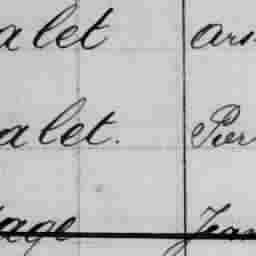 alet
alet. Pier
age Jean